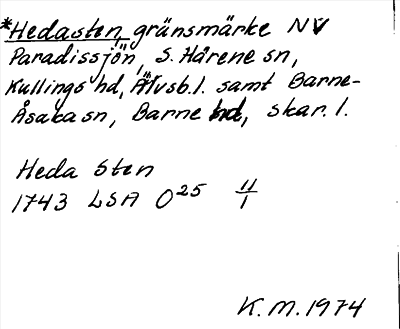 *Hedasten, gränsmärke NV
Paradissjön, S. Hårene sn,
Kullings hd, Älvsb. l. samt Barne-
Åsaka sn, Barne hd, Skar. l.
Heda Sten
1743 LSA O25 11/1
K.M. 1974